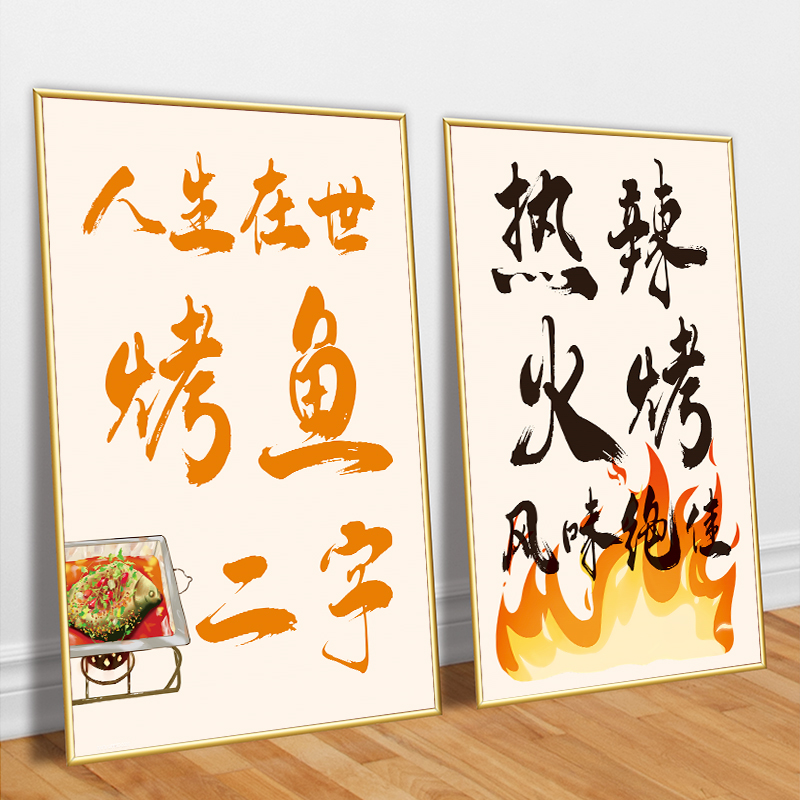 人生在世
烤鱼
二字
热辣
火烤
风味绝佳